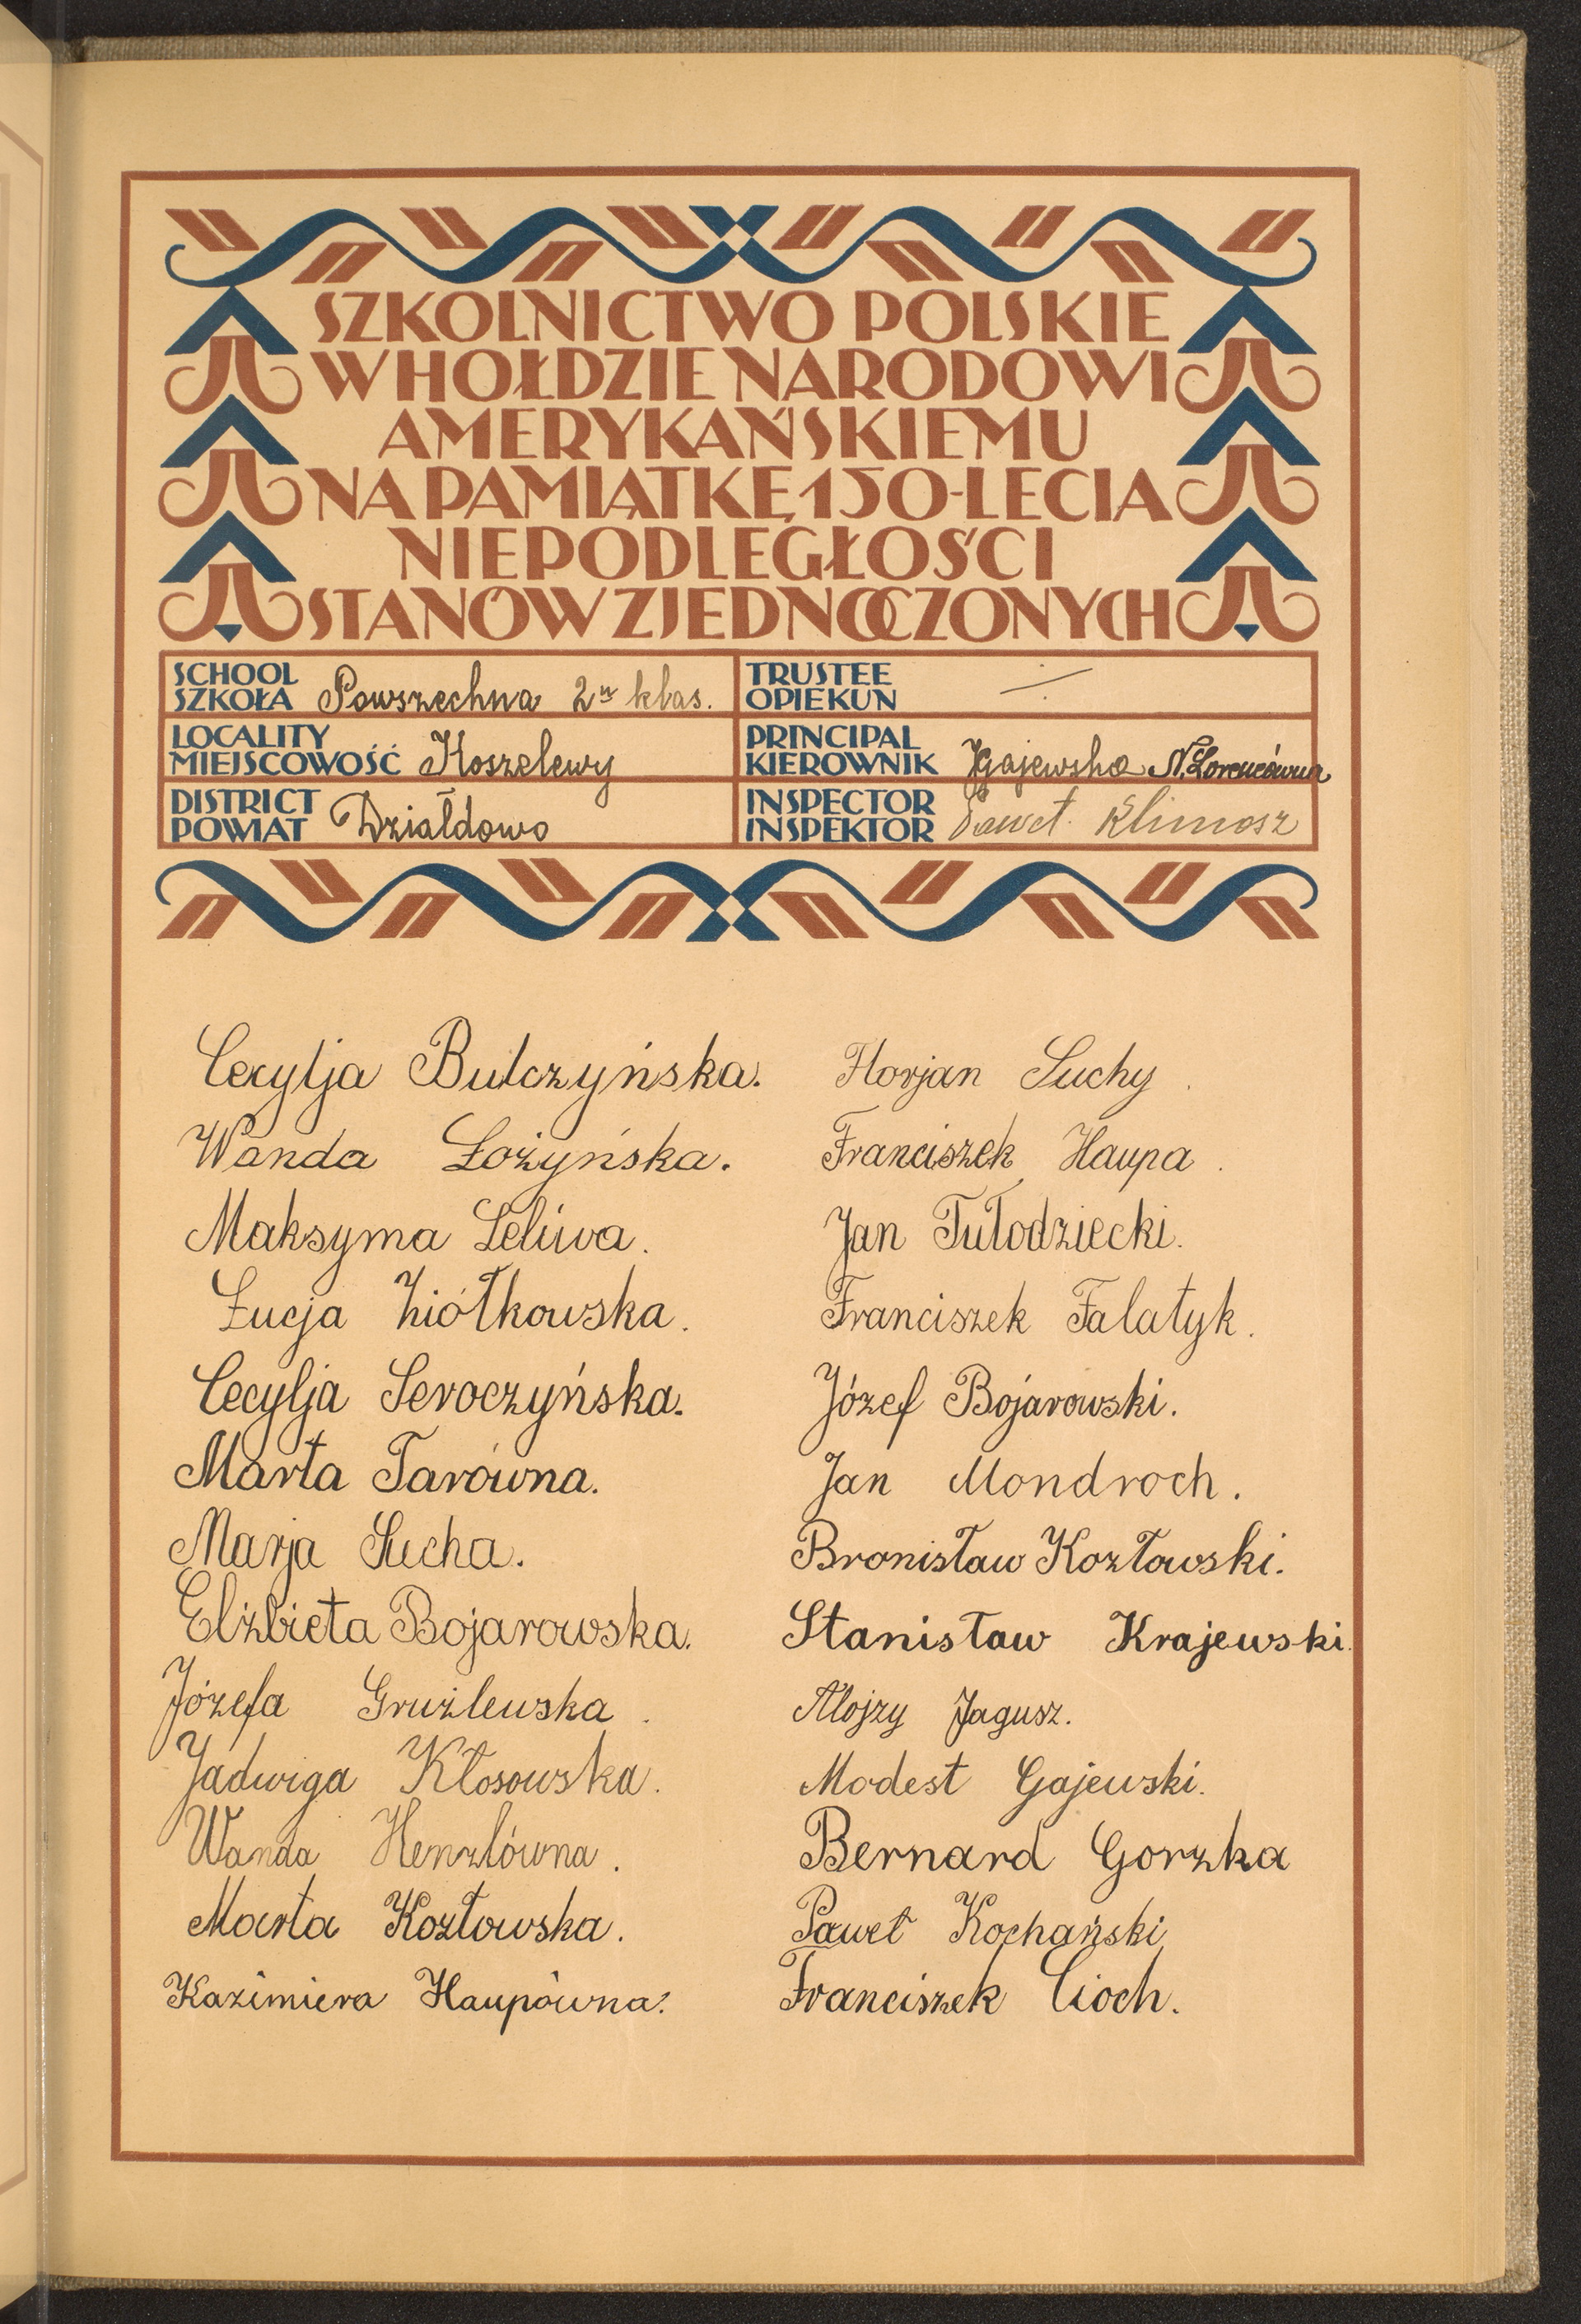 SZKOLNICTWO POLSKIE
W HOŁDZIE NARODOWI
AMERYKAŃSKIEMU
NA PAMIĄTKĘ 150-LECIA
NIEPODLEGŁOŚCI
STANÓW ZJEDNOCZONYCH
SCHOOL
SZKOŁA Powszechna 2 klas.
LOCALITY
MIEJSCOWOŚĆ Koszelewy
DISTRICT
POWIAT Działdowo
TRUSTEE
OPIEKUN
PRINCIPAL
KIEROWNIK JGajewska N. Lorencówna
INSPECTOR
INSPEKTOR Paweł Klimosz
Cecylja Bulczyńska.
Wanda Łożyńska.
Maksyma Leliwa.
Łucja Ziółkowska.
Cecylja Seroczyńska.
Marta Tarówna.
Marja Sucha.
Elżbieta Bojarowska.
Józefa Gruźlewska.
Jadwiga Kłosowska.
Wanda Henzlówna.
Marta Kozłowska.
Kazimiera Haupówna.
Florjan Suchy.
Franciszek Haupa.
Jan Tułodziecki.
Franciszek Falatyk.
Józef Bojarowski.
Jan Mondroch.
Bronisław Kozłowski.
Stanisław Krajewski.
Alojzy Jagusz.
Modest Gajewski.
Bernard Gorzka
Paweł Kochański
Franciszek Cioch.